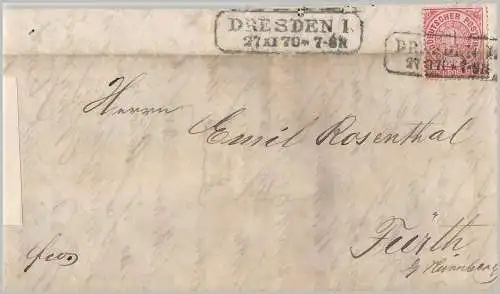 DRESDEN I.
27 XI 70 * 7-8 N
DEUTSCHER POST
DRESDEN I.
27 XI 70 * 7-8 N
Herrn
Emil Rosenthal
Fürth
b/ Nürnberg
fco.